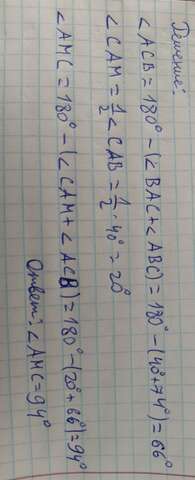 Решение:
∠ACB = 180° - (∠BAC + ∠ABC) = 180° - (40° + 74°) = 66°
∠CAM = 1/2 ∠CAB = 1/2 · 40° = 20°
∠AMC = 180° - (∠CAM + ∠ACB) = 180° - (20° + 66°) = 94°
Ответ: ∠AMC = 94°